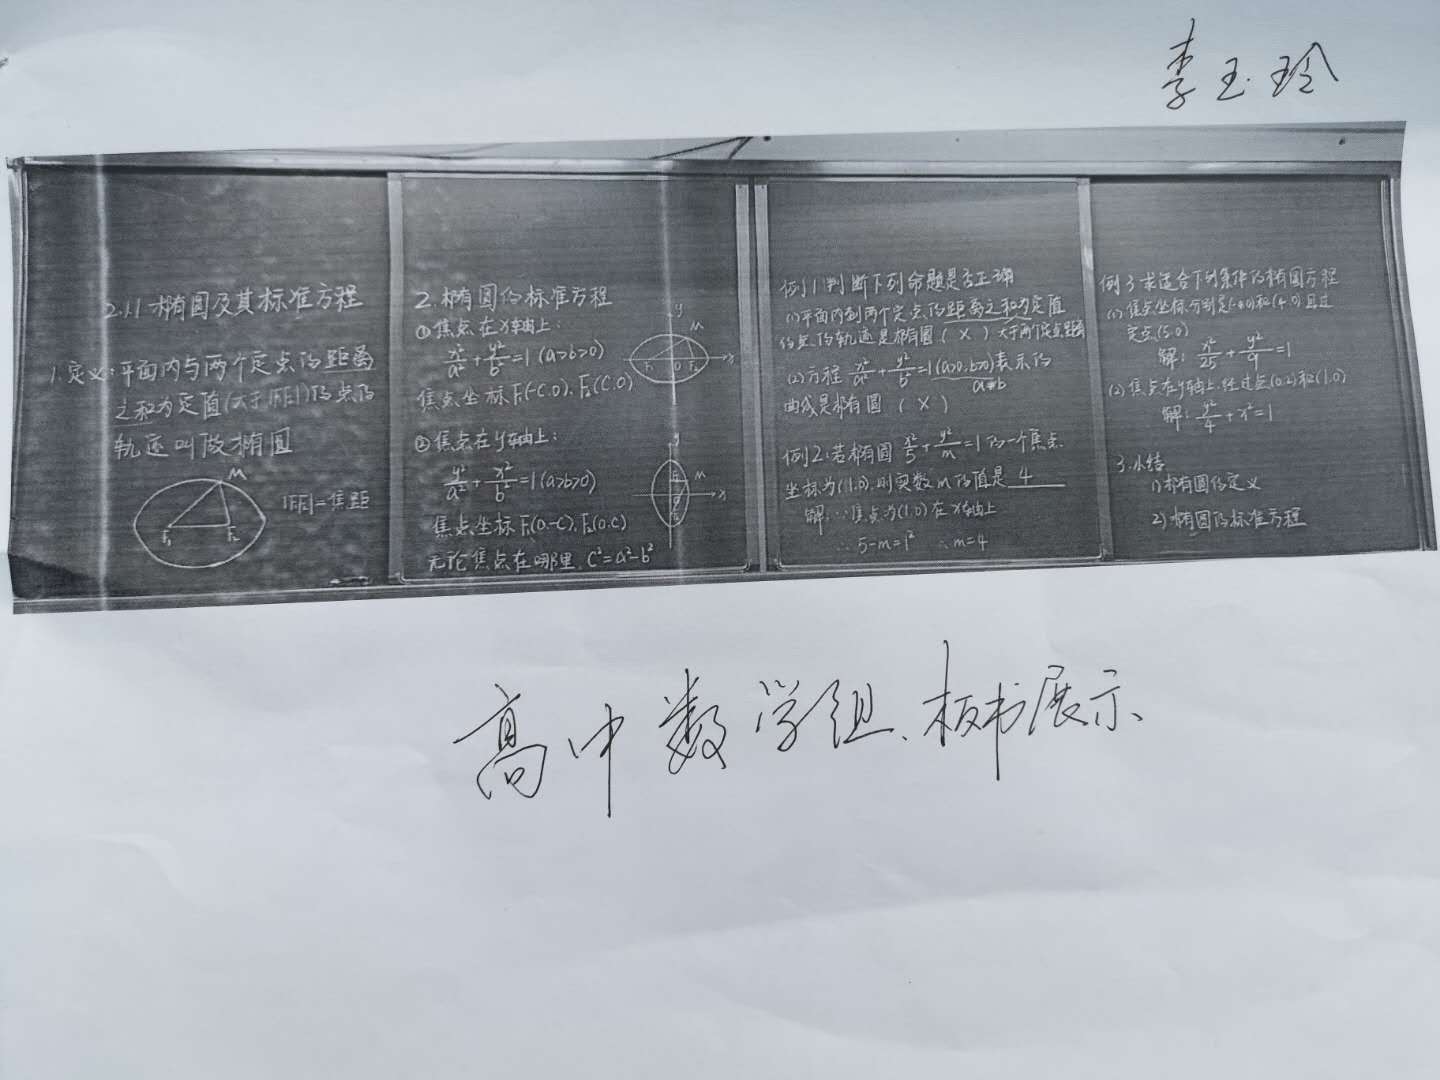 李玉玲
2.1.1 椭圆及其标准方程
1.定义:平面内与两个定点的距离
之和为定值(大于|F₁F₂|)的点的
轨迹叫做椭圆
M
|F₁F₂|=焦距
F₁ F₂
2.椭圆的标准方程
①焦点在x轴上:
x²/a²+y²/b²=1(a>b>0)
焦点坐标F₁(-C.0).F₂(C.0)
y
M
x
F₁ O F₂
②焦点在y轴上:
y²/a²+x²/b²=1(a>b>0)
焦点坐标F₁(0.-C).F₂(0.C)
无论焦点在哪里.C²=a²-b²
y
M
x
O
例1判断下列命题是否正确
(1)平面内到两个定点的距离之和为定值
的点的轨迹是椭圆(×)大于两个定点距离
(2)方程x²/a²+y²/b²=1(a>0.b>0)表示的
a≠b
曲线是椭圆(×)
例2:若椭圆x²/5+y²/m=1的一个焦点
坐标为(1.0),则实数m的值是 4
解:∵焦点为(1.0)在x轴上
∴5-m=1² ∴m=4
例3求适合下列条件的椭圆方程
(1)焦点坐标分别是(-4.0)和(4.0)且过
定点(5.0)
解:x²/25+y²/9=1
(2)焦点在y轴上.经过点(0.2)和(1.0)
解:y²/4+x²=1
3.小结
1)椭圆的定义
2)椭圆的标准方程
高中数学组、板书展示、